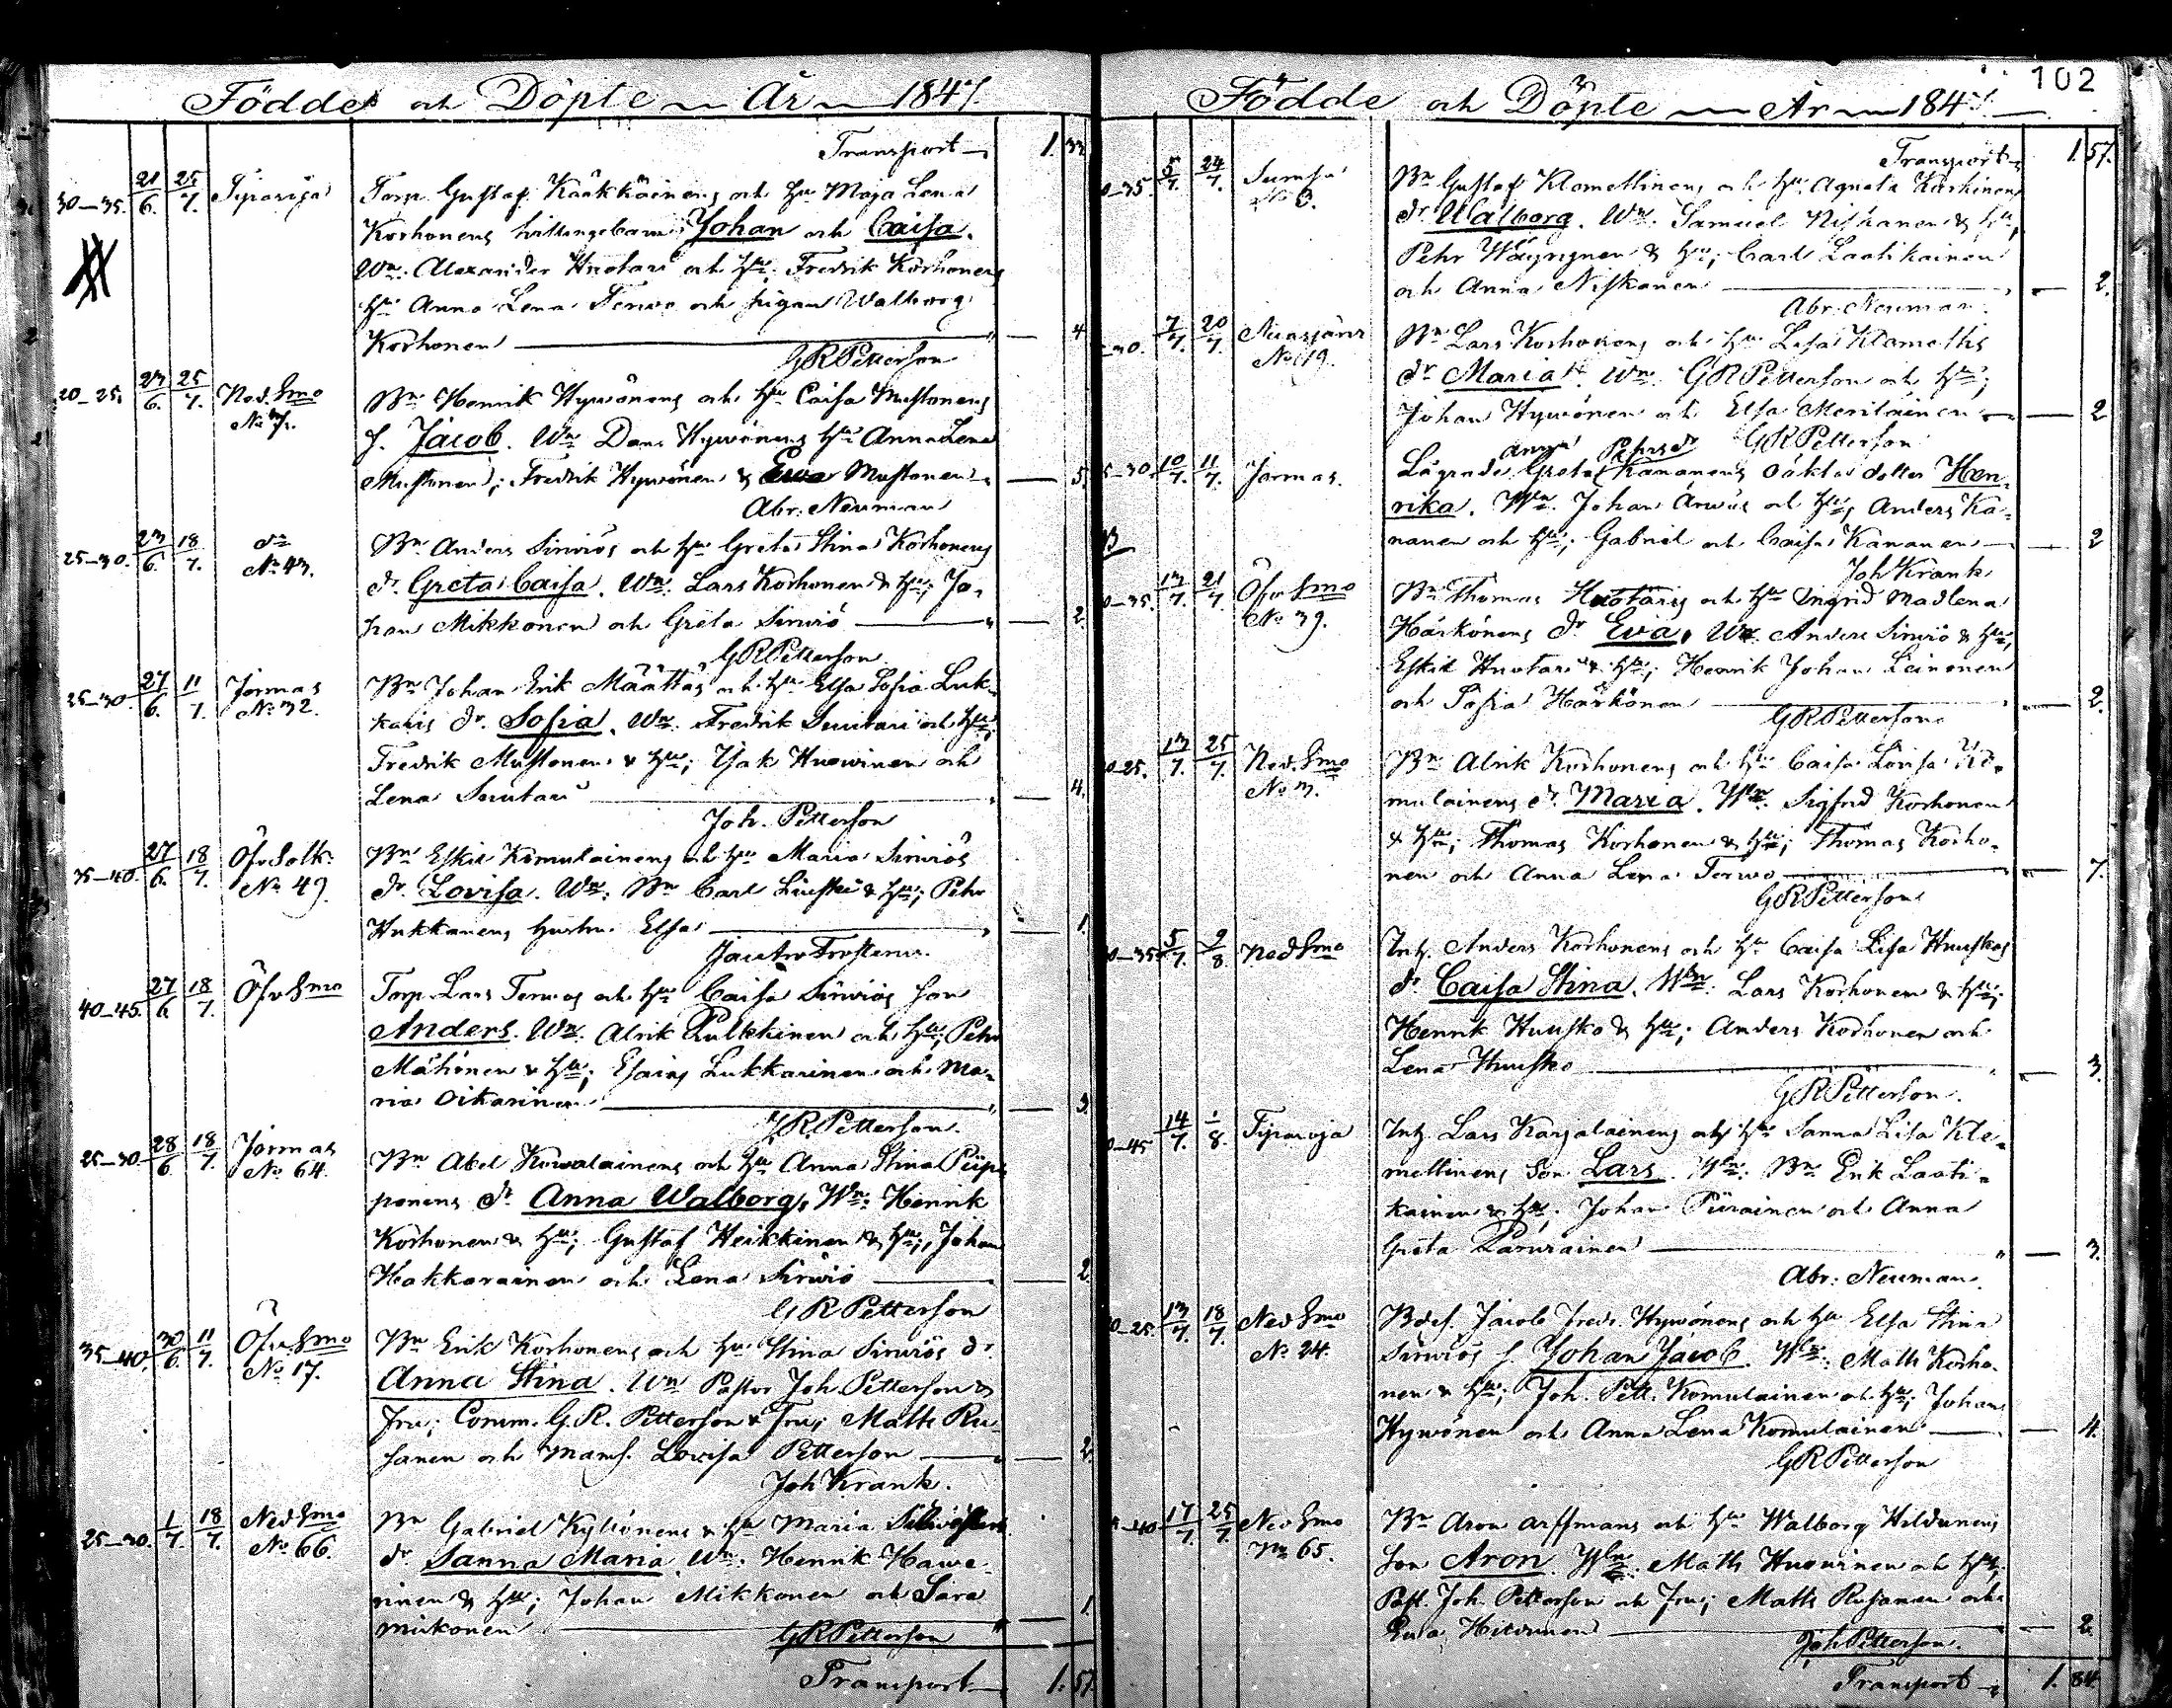 Födde och Döpte År 1847.
Transport 1. 33
30-35. 21/6. 25/7. Tipasoja Torp. Gustaf Kääkkäinens och hu Maja Lena
Korhonens tvillingebarn Johan och Caisa.
Wn. Alexander Huotari och hu; Fredrik Korhonens
hu Anna Lena Terwo och pigan Walborg
Korhonen 4
GRPetterson
20-25. 23/6. 25/7. Ned. Smo Bn Henrik Hywönens och hu Caisa Mustonens
No s. Jacob. Wn Dan. Hywönens hu Anna Lena
Mustonen; Fredrik Hywönen & Ewa Mustonen 5.
Abr: Neuman
25-30. 23/6. 18/7. do Bn Anders Sirwiös och hu Greta Stina Korhonens
No 43. dr. Greta Caisa. Wn. Lars Korhonen & hu; Jo-
han Mikkonen och Greta Sirwiö 2.
GRPetterson
25-30. 27/6. 11/7. Jormas Bn Johan Erik Määttäs och hu Elsa Sofia Luk-
No 32. karis dr. Sofia. Wn. Fredrik Suutari och hu;
Fredrik Mustonen & hu; Isak Huowinen och
Lena Suutari 4.
Joh. Petterson
35-40. 27/6. 18/7. Öfv Sotk: Bn Eskil Komulainens och hu Maria Sirwiös
No 49. dr. Lovisa. Wn: Bn Carl & hu; Pehr
Hukkanens hustru Elsa 1.
40-45. 27/6. 18/7. Öfv Smo Torp. Lars Terwos och hu Caisa Sirwiös son
Anders. Wn. Alrik Pulkkinen och hu; Pehr
Mähönen & hu; Esaias Lukkarinen och Ma-
ria Oikarinen 3.
GRPetterson.
25-30 28/6. 18/7. Jormas Bn Abel Kowalainens och hu Anna Stina Piip-
No 64. ponens dr. Anna Walborg, Wn: Henrik
Korhonen & hu; Gustaf Heikkinen & hu; Johan
Hakkarainen och Lena Sirwiö 2.
GRPetterson
35-40. 30/6. 11/7. Öfv. Smo Bn Erik Korhonens och hu Stina Sirwiös dr.
No 17. Anna Stina. Wn Pastor Joh Petterson &
Fru; Comm. G.R. Petterson & Fru; Matts Ru-
sanen och Mams. Lovisa Petterson 2.
Joh Krank.
25-30. 1/7. 18/7. Ned Smo Bn Gabriel Kylönens & hu Maria
No 66. dr. Sanna Maria. Wn. Henrik Hawe-
rinen & hu; Johan Mikkonen och Sara
Mikonen 1.
GRPetterson
Transport 1. 57
102
Födde och Döpte År 1847.
Transport 1 57.
5/7. 24/7. Sumsa Bn Gustaf Klemettinens och hu Agneta Karhinens
No 6. dr. Walborg. Wn. Samuel Niskanen & hu;
Pehr Wäyrynen & hu; Carl Laatikainen
och Anna Niskanen 2.
Abr. Neuman
7/7. 20/7. Nuasjärvi Bn Lars Korhonens och hu Lisa Klamettis
No 119. dr Maria. Wn. GRPetterson och hu;
Johan Hywönen och Elsa Meriläinen 2
GRPetterson
10/7. 11/7. Jormas. Lägrade Greta Pehrsdr Kananens oäkta dotter Hen-
rika. Wn. Johan och hu; Anders Ka-
nanen och hu; Gabriel och Caisa Kananen 2
Joh Krank
13/7. 21/7. Öfv Smo Bn Thomas Huotaris och hu Ingrid Madlena
No 39. Härkönens dr. Eva. Wn. Anders Sirwiö & hu;
Eskil Huotari & hu; Henrik Johan Leinonen
och Sofia Härkönen 2.
GRPetterson
13/7. 25/7. Ned. Smo Bn Alrik Korhonens och hu Caisa Lovisa Ko-
No 3. mulainens dr. Maria. Wn. Sigfrid Korhonen
& hu; Thomas Korhonen & hu; Thomas Korho-
nen och Anna Lena Terwo 7.
GRPetterson
5/7. 9/8. Ned Smo Inh. Anders Korhonens och hu Caisa Lisa Huuskos
dr. Caisa Stina. Wn. Lars Korhonen & hu;
Henrik Huusko & hu; Anders Korhonen och
Lena Huusko 3.
GRPetterson.
14/7. 1/8. Tipasoja Inh. Lars Karjalainens och hu Sanna Lisa Kle-
mettinens son Lars. Wn. Bn Erik Laati-
kainen & hu; Johan Piirainen och Anna
Greta 3.
Abr: Neuman.
13/7. 18/7. Ned Smo Bdes. Jacob Fredr. Hywönens och hu Elsa Stina
No 24. Sirwiös s. Johan Jacob. Wn: Matts Korho-
nen & hu; Joh. Pett. Komulainen och hu; Johan
Hywönen och Anna Lena Komulainen 4.
GRPetterson
17/7. 25/7. Ned Smo Bn Aron Arffmans och hu Walborg Hildunens
No 65. Son Aron. Wn. Matts Huowinen och hu;
Past. Joh. Petterson och Fru; Matts Rusanen och
Hiltunen 2.
Joh Petterson.
Transport 1. 84